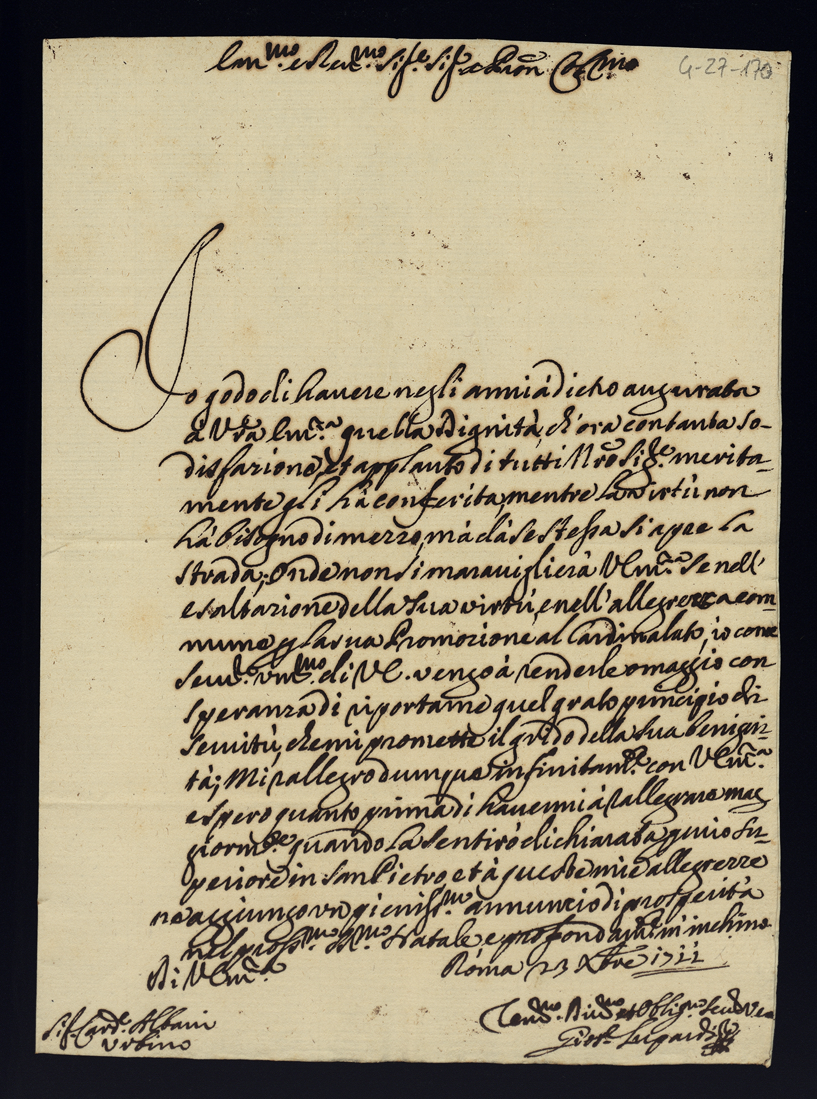 Em.mo e Rev.mo Sig.re Sig.re e Pron Col.mo
4-27-170
Io godo di havere negli anni à dietro augurata
à Vr̃a Em.za quella Dignità, ch'ora con tanta so-
disfazione, et applauto di tutti Nr̃o Sig.re merita-
mente gli hà conferita, mentre la virtù non
hà bisogno di mezzo, mà dà se stessa si apre la
strada; Onde non si maraviglierà V Em.za se nell'
esaltazione della sua virtù, e nell'allegrezza com-
mune p̲ la sua Promozione al Cardinalato, io come
Serv.re Um.mo di V E. vengo à renderle omaggio con
speranza di riportarne quel grato principio di
servitù, che mi promette il grido della sua benigni-
tà; Mi rallegro dunque infinitam.te con V Em.za
e spero quanto prima di havermi à rallegrare mag
giorm.te quando la sentirò dichiarata p̲ mio Su-
periore in San Pietro, et à queste mie allegrezze
ne aggiungo un pieniss.mo annuncio di prosperità
nel pross.mo SS.mo Natale e profondam.te m'inchino
Di V Em.za
Roma 23 Xbre 1711
Sig. Card. Albani
Urbino
Um.mo Div.mo et Oblig.mo Serv. Vero